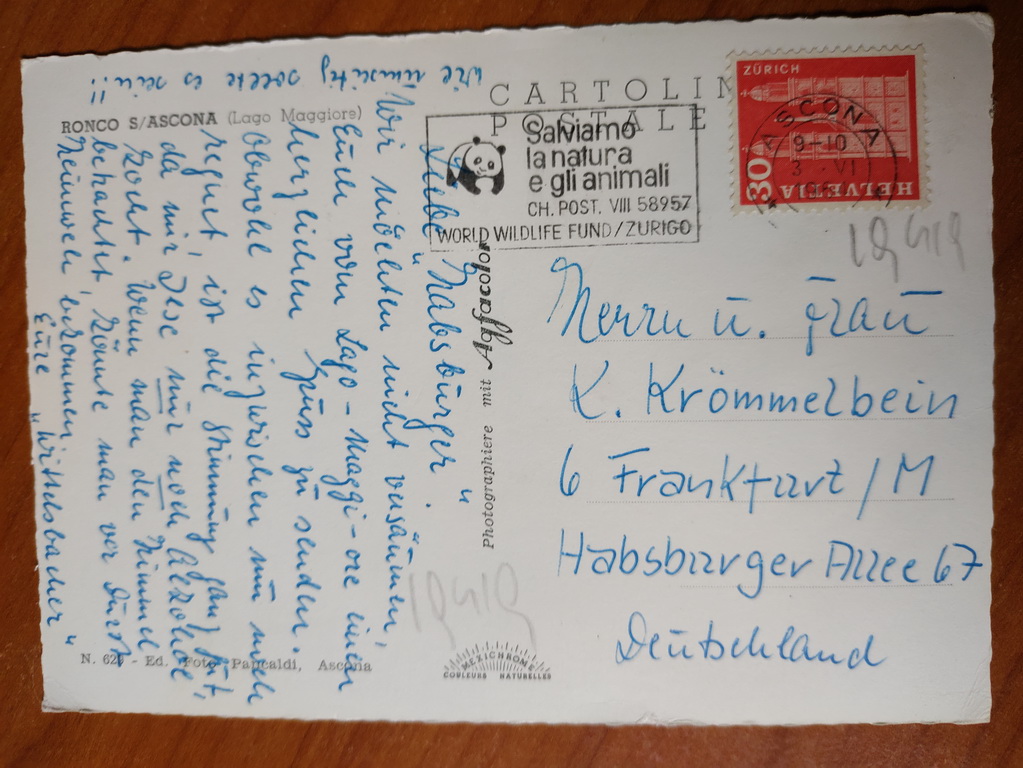 RONCO S/ASCONA (Lago Maggiore)
CARTOLIN
POSTALE
Salviamo
la natura
e gli animali
CH. POST. VIII 58957
WORLD WILDLIFE FUND/ZURIGO
ZÜRICH
30
HELVETIA
ASCONA
9-10
3 VI
Liebe "Habsburger"
Wir möchten nicht versäumen,
Euch vom Lago-Maggi-ore einen
herzlichen Gruss zu senden.
Obwohl es inzwischen nur noch
regnet, ist die Stimmung ganz gut,
da mir Jese nur noch Alkohol
kocht. Wenn man den Himmel
betrachtet, könnte man vor Durst
Heimweh bekommen
Eure "Wittelsbacher"
wie sollte es sein!!
Photographiere mit Agfacolor
Herrn u. Frau
K. Krömmelbein
6 Frankfurt/M
Habsburger Allee 67
Deutschland
N. 629 - Ed. Foto Pancaldi, Ascona
MEXICHROME
COULEURS NATURELLES